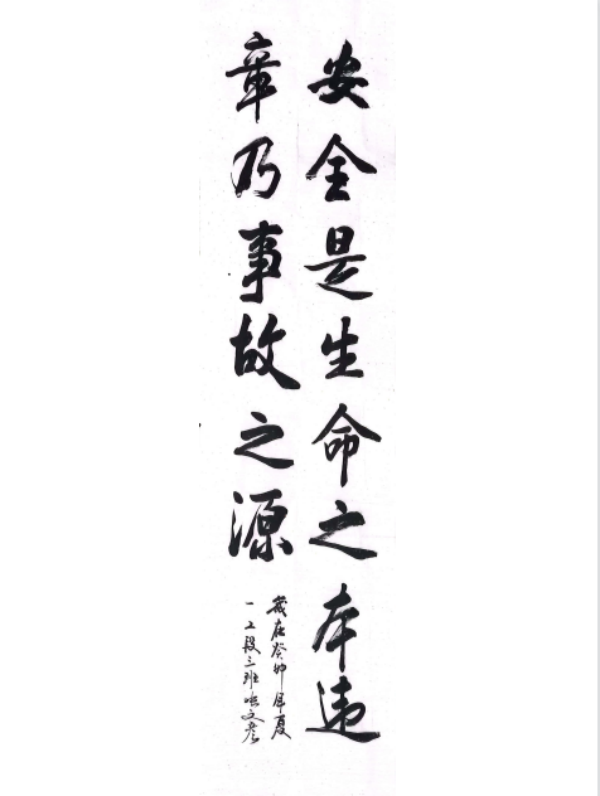 安全是生命之本违
章乃事故之源
岁在癸卯年夏
一工段三班 文彦